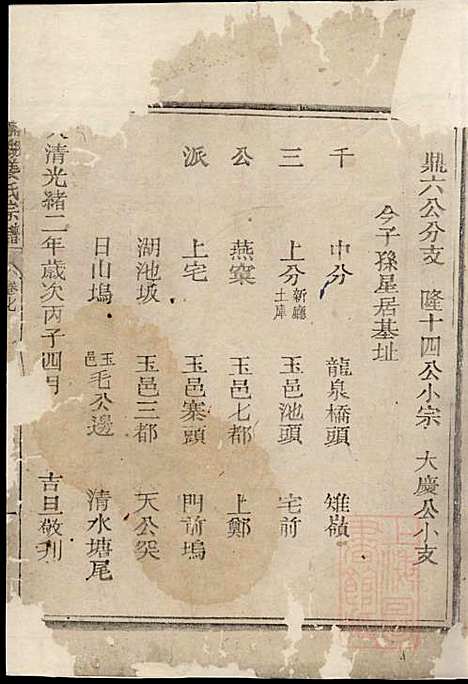 鼎六公分支　隆十四公小宗　大慶公小支
今子孫星居基址
千　中分　龍泉橋頭　雉嶺
三　上分　新廳土庫　玉邑池頭　宅前
公　燕窠　玉邑七都　上鄭
派　上宅　玉邑寨頭　門前塢
湖池坂　玉邑三都　天公突
日山塢　玉邑毛公邊　清水塘尾
清光緒二年歲次丙子四月　吉旦敬刊
氏宗譜　卷